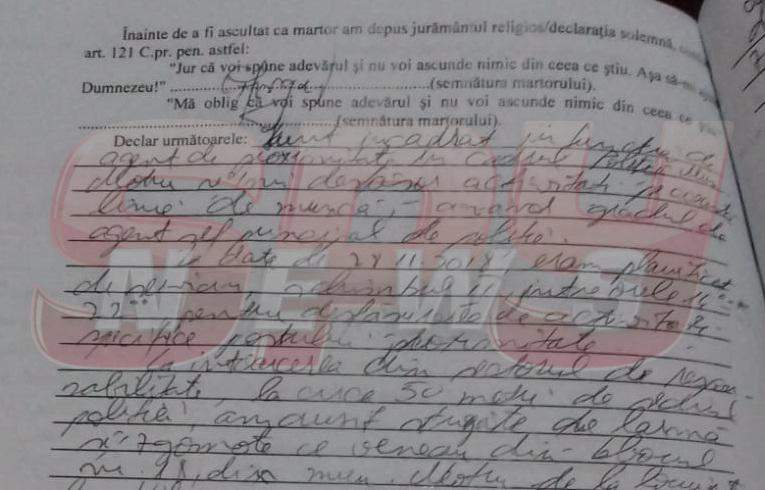 Înainte de a fi ascultat ca martor am depus jurământul religios/declaraţia solemnă,
art. 121 C.pr. pen. astfel:
"Jur că voi spune adevărul şi nu voi ascunde nimic din ceea ce ştiu. Aşa să-mi
Dumnezeu!" (semnătura martorului).
"Mă oblig că voi spune adevărul şi nu voi ascunde nimic din ceea ce ştiu
(semnătura martorului).
Declar următoarele: Sunt încadrat în funcţia de
agent de proximitate în cadrul Poliţiei
Motru şi îmi desfăşor activitatea pe această
linie de muncă, având gradul de
agent şef principal de poliţie.
În data de eram planificat
de serviciu, schimbul II, între orele
22⁰⁰, pentru desfăşurarea de activităţi
specifice postului proximitate.
La întoarcerea din sectorul de respon-
sabilitate, la circa 50 metri de sediul
poliţiei, am auzit strigăte de larmă
şi zgomote ce veneau din blocul
nr. din mun. Motru de la
SPY
NEWS